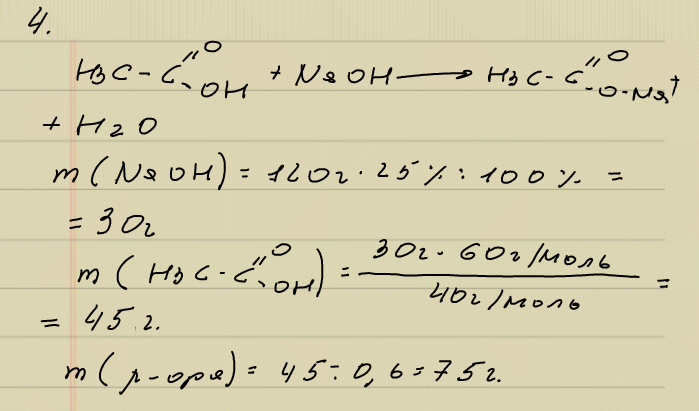 4.
H3C-C(=O)-OH + NaOH ⟶ H3C-C(=O)-O-Na +
+ H2O
m(NaOH) = 120г · 25% : 100% =
= 30г
m(H3C-C(=O)-OH) = 30г · 60г/моль / 40г/моль =
= 45 г.
m(р-ора) = 45 : 0,6 = 75г.